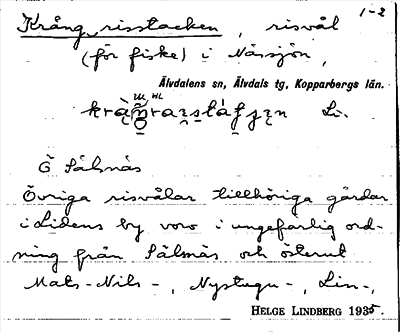 1-2
Krång, risstacken, risvål
(för fiske) i Nässjön,
Älvdalens sn, Älvdals tg, Kopparbergs län.
Li.
Ö Sälsnäs
Övriga risvålar tillhöriga gårdar
i Lidens by voro i ungefärlig ord-
ning från Sälsnäs och österut
Mats-Nils-, Nystugu-, Lin-,
HELGE LINDBERG 1935.